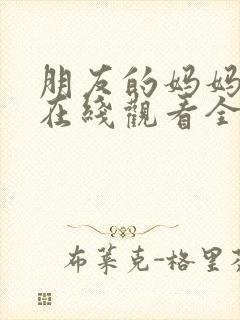 朋友的妈妈
在线觀看全
布莱克-格里芬